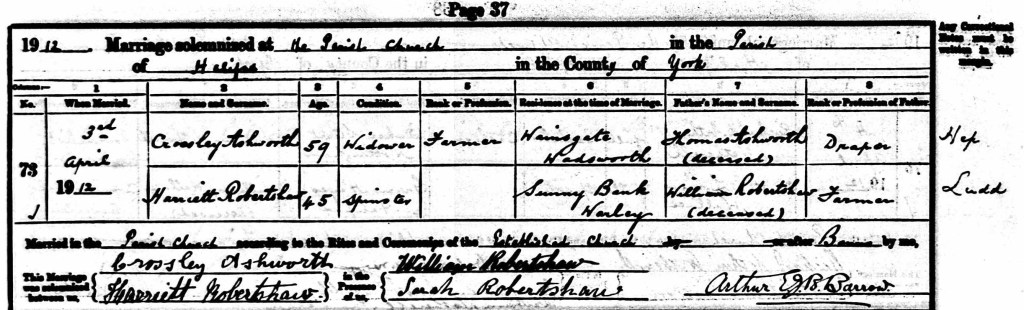 Page 37
1912. Marriage solemnized at the Parish Church in the Parish
of Halifax in the County of York
Columns:— 1 2 3 4 5 6 7 8
No. When Married. Name and Surname. Age. Condition. Rank or Profession. Residence at the time of Marriage. Father's Name and Surname. Rank or Profession of Father.
73 3rd April 1912 Crossley Ashworth 59 Widower Farmer Wainsgate Wadsworth Thomas Ashworth (deceased) Draper
Harriett Robertshaw 45 Spinster Sunny Bank Warley William Robertshaw (deceased) Farmer
Married in the Parish Church according to the Rites and Ceremonies of the Established Church by or after Banns by me,
This Marriage was solemnized between us, Crossley Ashworth Harriett Robertshaw in the Presence of us, William Robertshaw Sarah Robertshaw Arthur E. J. B. Barrow.
Any Correctional Notes must be written in this margin.
Hep
Ludd